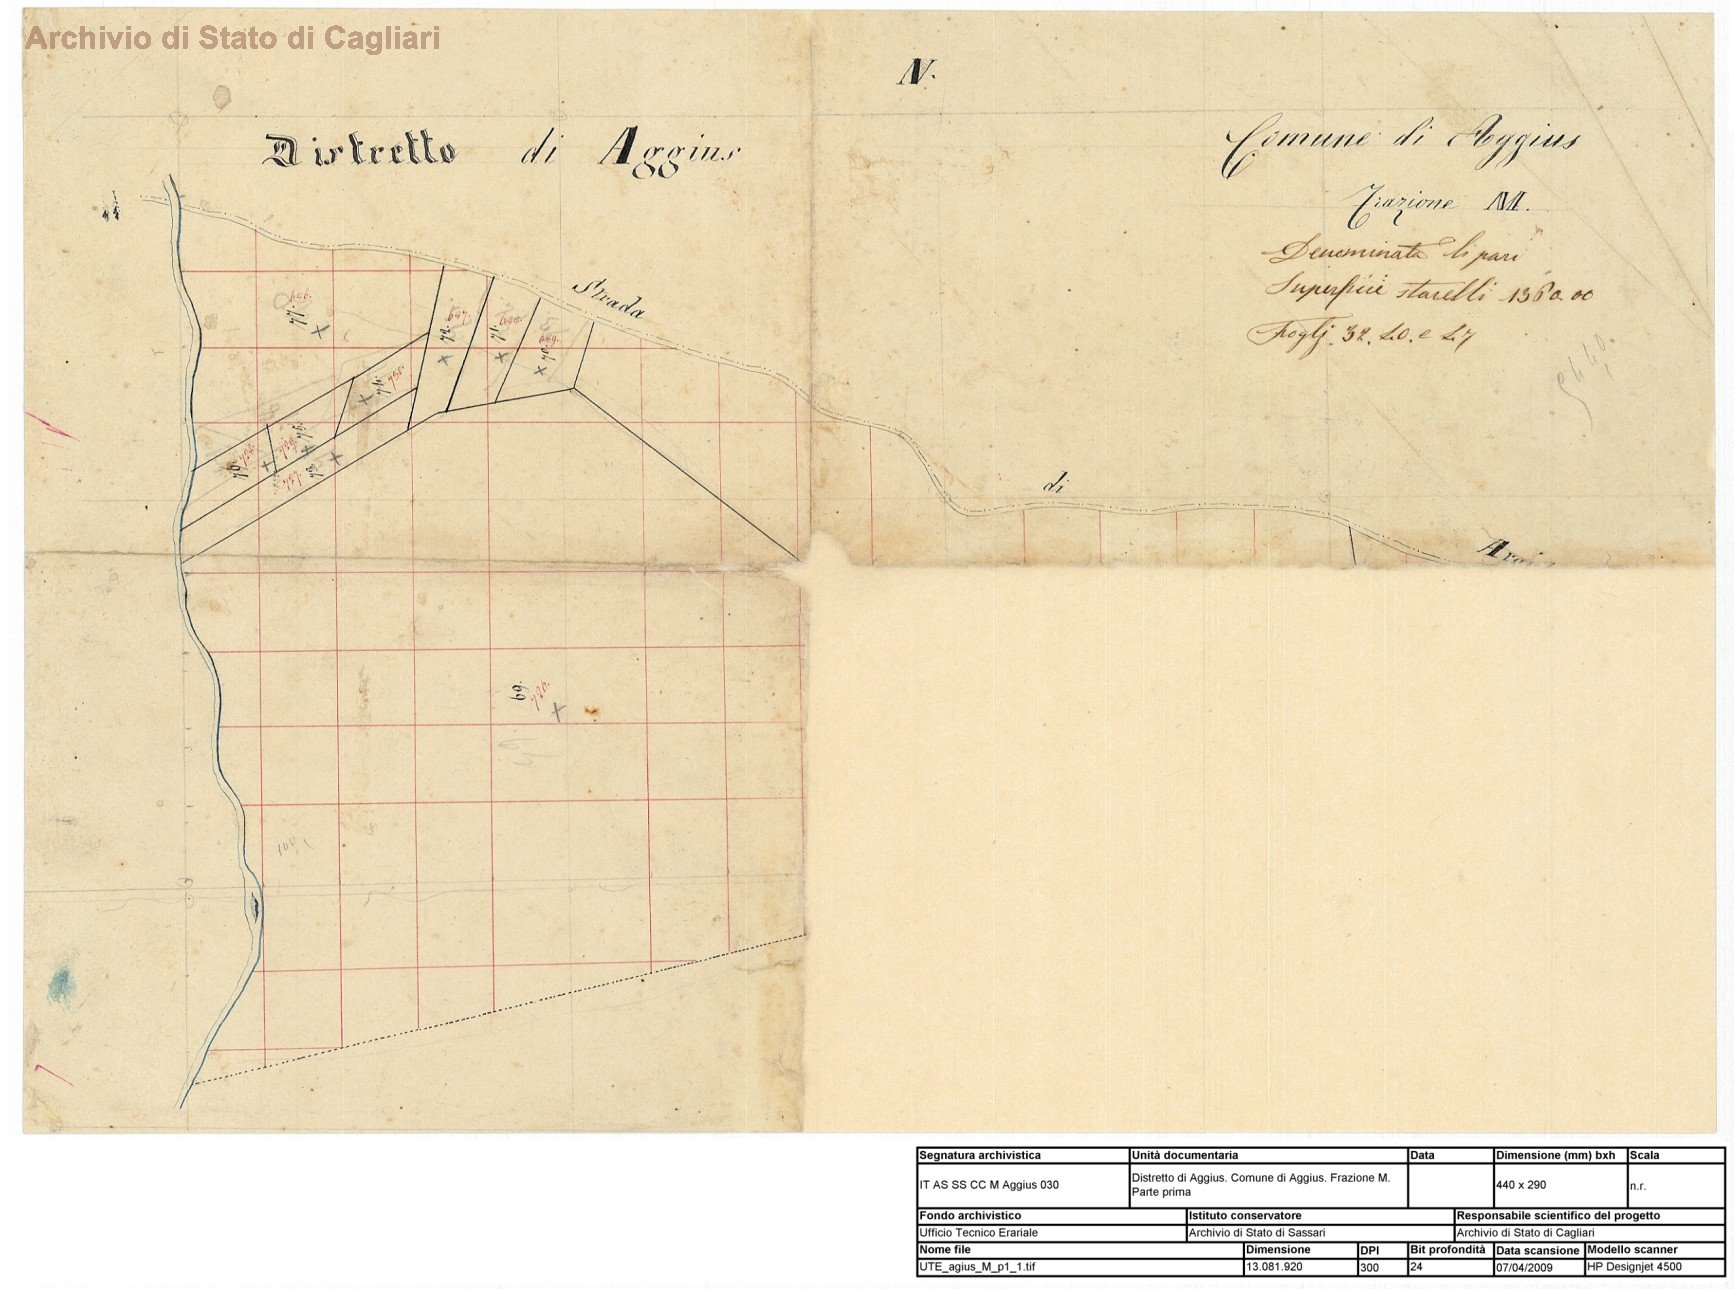 Archivio di Stato di Cagliari
N.
Distretto di Aggius
Comune di Aggius
Frazione M.
Denominata li pari
Superficie starelli 1360.00
Fogli. 32. 40. e 47
Strada
di
646.
77.
647.
72.
648.
71.
649.
70.
730.
74.
75.
76.
73.
727.
69.
726.
100
Segnatura archivistica
Unità documentaria
Data
Dimensione (mm) bxh
Scala
IT AS SS CC M Aggius 030
Distretto di Aggius. Comune di Aggius. Frazione M.
Parte prima
440 x 290
n.r.
Fondo archivistico
Istituto conservatore
Responsabile scientifico del progetto
Ufficio Tecnico Erariale
Archivio di Stato di Sassari
Archivio di Stato di Cagliari
Nome file
Dimensione
DPI
Bit profondità
Data scansione
Modello scanner
UTE_agius_M_p1_1.tif
13.081.920
300
24
07/04/2009
HP Designjet 4500